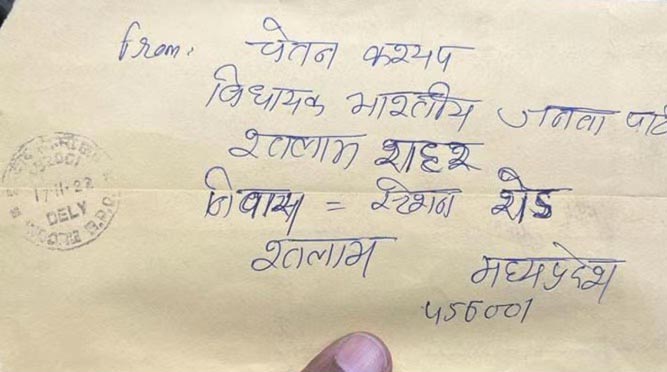 From: चेतन कश्यप
विधायक भारतीय जनता पार्ट
रतलाम शहर
निवास = स्टेशन रोड
रतलाम मध्यप्रदेश
456001
17-11-22
DELY